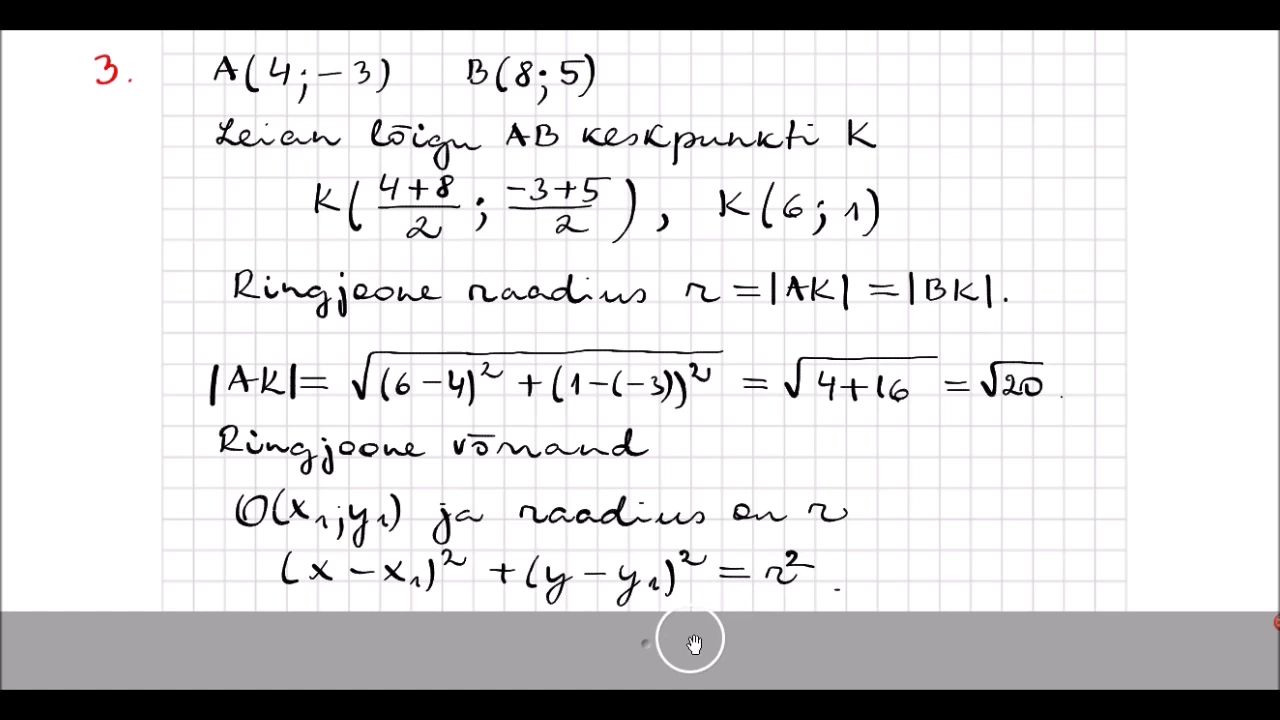 3. A(4;-3) B(8;5)
Leian lõigu AB keskpunkti K
K(4+8/2; -3+5/2), K(6;1)
Ringjoone raadius r = |AK| = |BK|.
|AK| = √((6-4)² + (1-(-3))²) = √(4+16) = √20
Ringjoone võrrand
O(x₁;y₁) ja raadius on r
(x-x₁)² + (y-y₁)² = r².